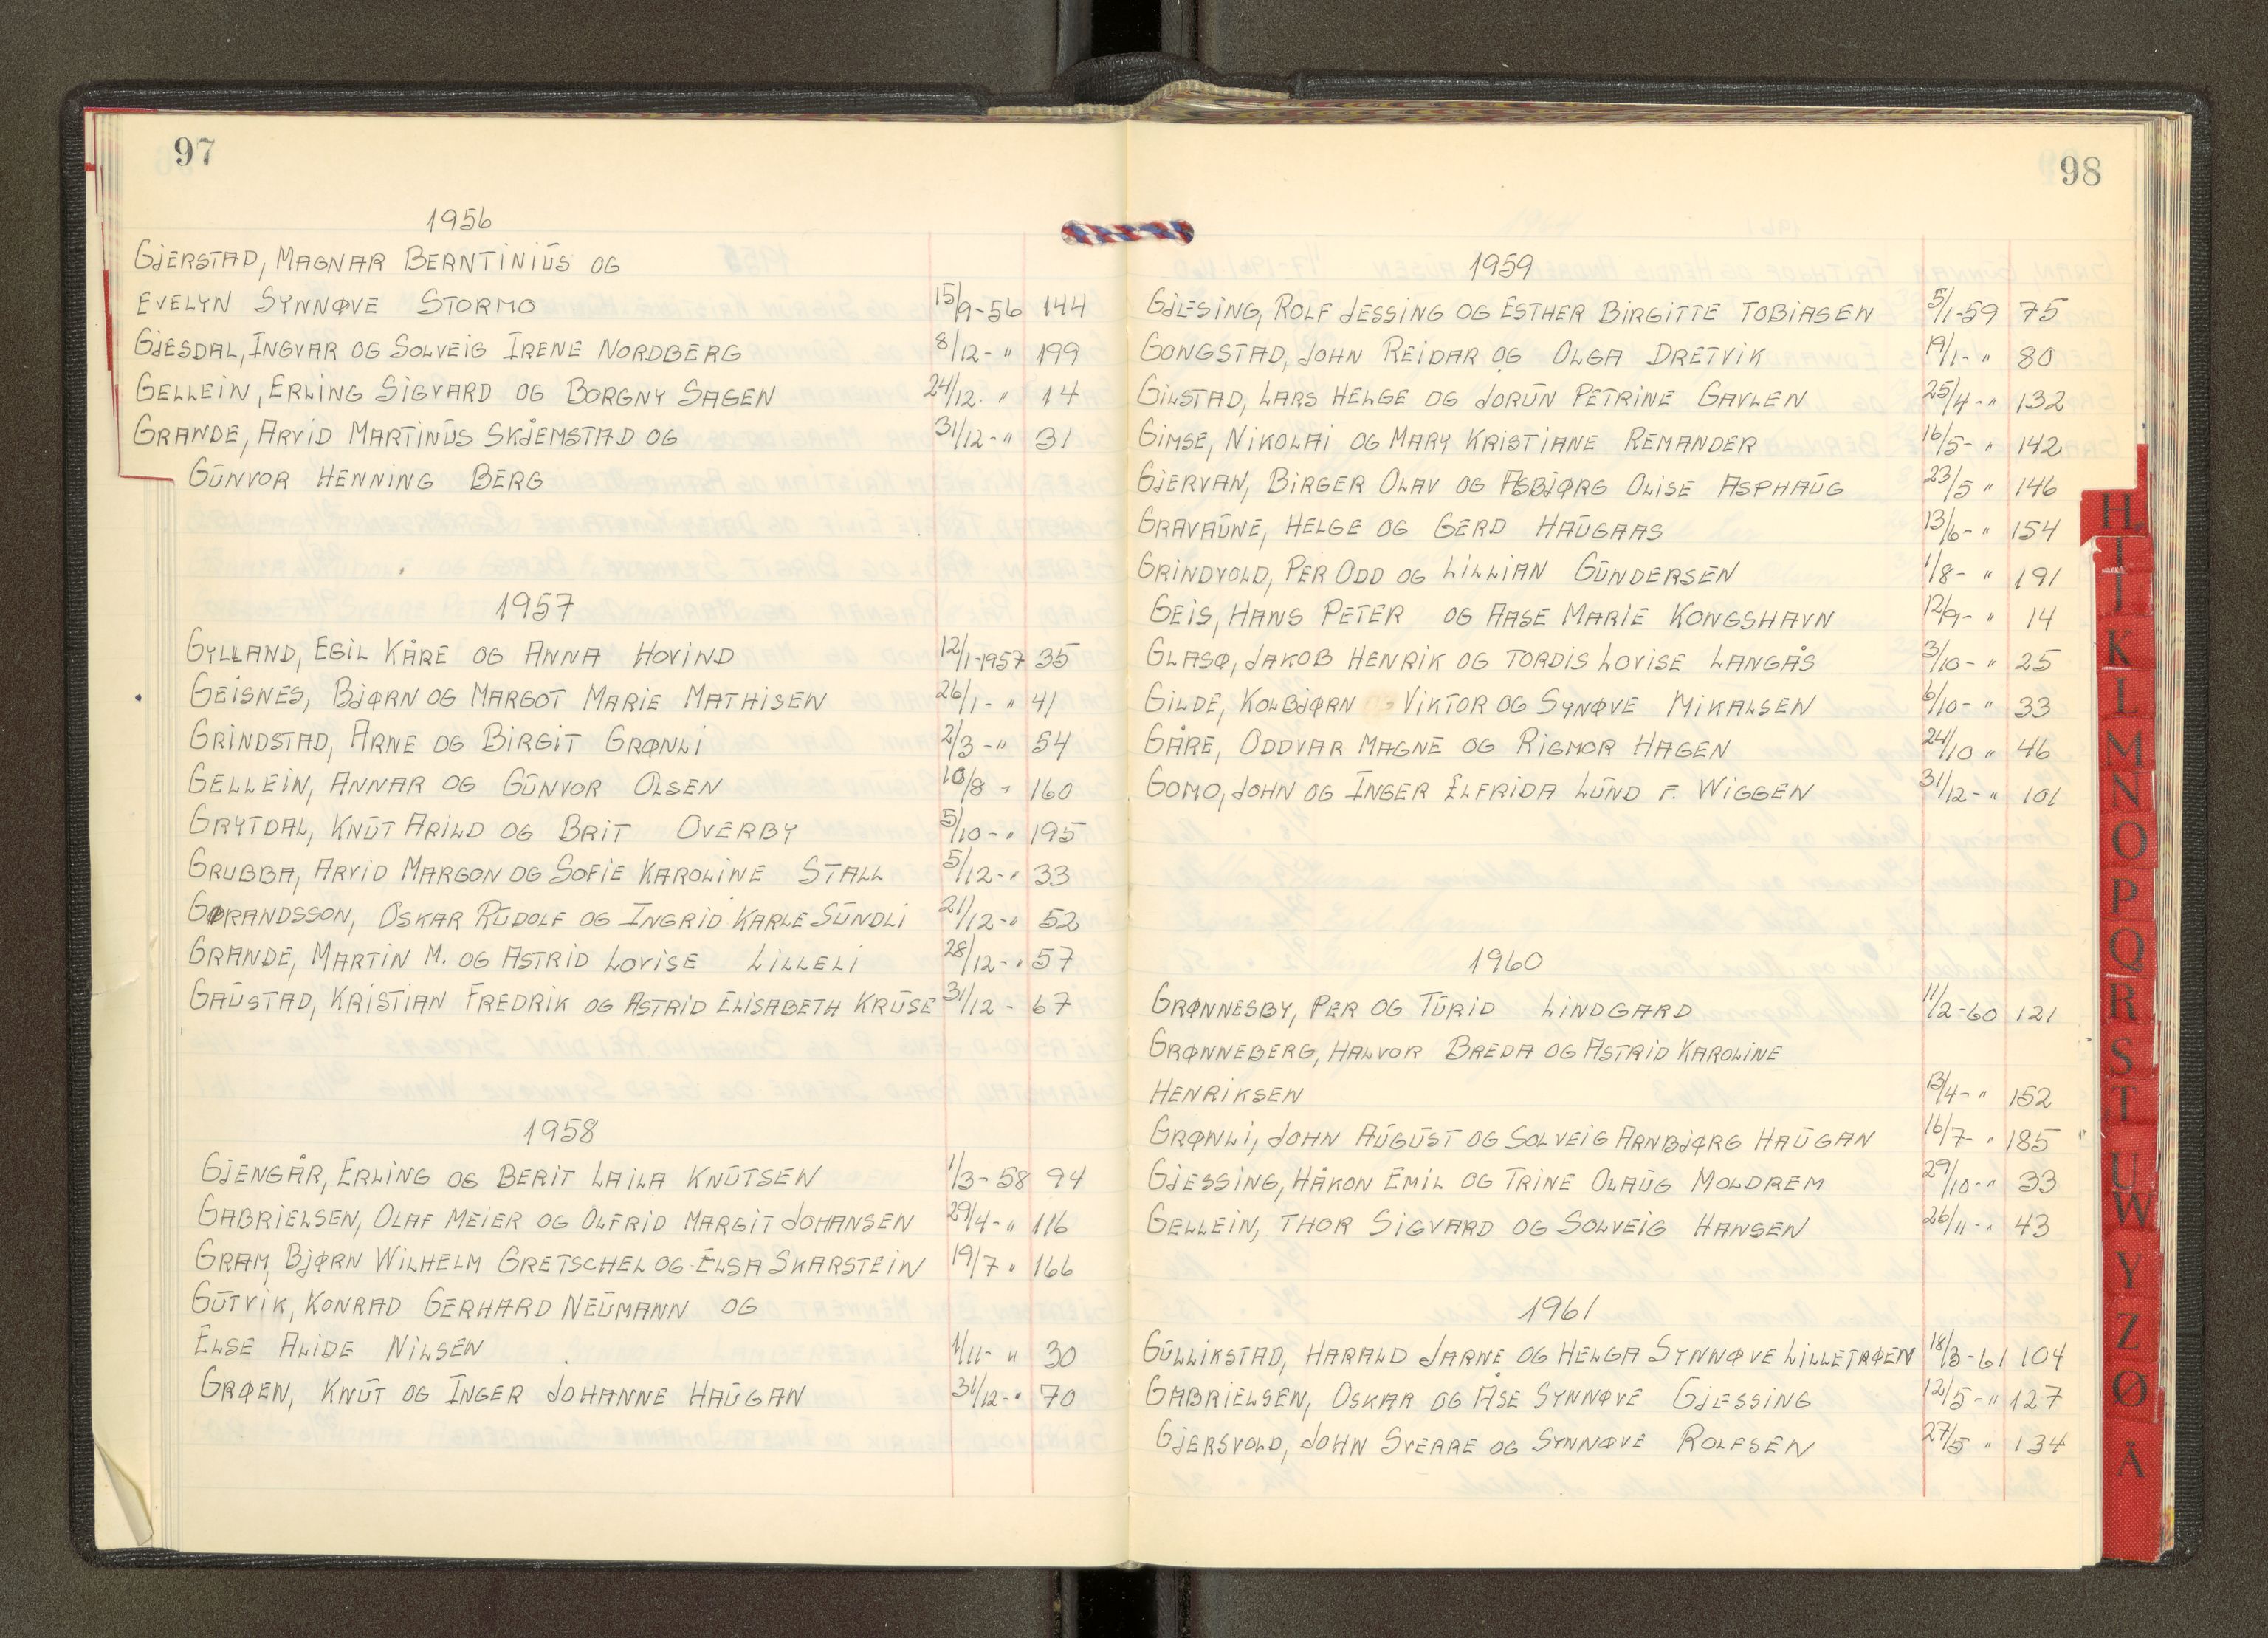 97
1956
GJERSTAD, MAGNAR BERNTINIUS OG
EVELYN SYNNØVE STORMO 15/9-56 144
GJESDAL, INGVAR OG SOLVEIG IRENE NORDBERG 8/12- " 199
GELLEIN, ERLING SIGVARD OG BORGNY SAGEN 24/12. " 14
GRANDE, ARVID MARTINUS SKJEMSTAD OG 31/12- " 31
GUNVOR HENNING BERG
1957
GYLLAND, EGIL KÅRE OG ANNA HOVIND 12/1-1957 35
GEISNES, BJØRN OG MARGOT MARIE MATHISEN 26/1- " 41
GRINDSTAD, ARNE OG BIRGIT GRØNLI 2/3- " 54
GELLEIN, ANNAR OG GUNVOR OLSEN 10/8 " 160
GRYTDAL, KNUT ARILD OG BRIT OVERBY 5/10- " 195
GRUBBA, ARVID MARGON OG SOFIE KAROLINE STALL 5/12- " 33
GØRANDSSON, OSKAR RUDOLF OG INGRID KARLE SUNDLI 21/12- " 52
GRANDE, MARTIN M. OG ASTRID LOVISE LILLELI 28/12- " 57
GAUSTAD, KRISTIAN FREDRIK OG ASTRID ELISABETH KRUSE 31/12 - 67
1958
GJENGÅR, ERLING OG BERIT LAILA KNUTSEN 1/3-58 94
GABRIELSEN, OLAF MEIER OG OLFRID MARGIT JOHANSEN 29/4- " 116
GRAM, BJØRN WILHELM GRETSCHEL OG ELSA SKARSTEIN 19/7 " 166
GUTVIK, KONRAD GERHARD NEUMANN OG
ELSE ALIDE NILSEN 1/11- " 30
GRØEN, KNUT OG INGER JOHANNE HAUGAN 31/12- " 70
98
1959
GJESING, ROLF JESSING OG ESTHER BIRGITTE TOBIASEN 5/1-59 75
GONGSTAD, JOHN REIDAR OG OLGA DRETVIK 19/1- " 80
GILSTAD, LARS HELGE OG JORUN PETRINE GAVLEN 25/4- " 132
GIMSE, NIKOLAI OG MARY KRISTIANE REMANDER 16/5- " 142
GJERVAN, BIRGER OLAV OG ASBJØRG OLISE ASPHAUG 23/5 " 146
GRAVAUNE, HELGE OG GERD HAUGAAS 13/6- " 154
GRINDVOLD, PER ODD OG LILLIAN GUNDERSEN 1/8- " 191
GEIS, HANS PETER OG AASE MARIE KONGSHAVN 12/9- " 14
GLASØ, JAKOB HENRIK OG TORDIS LOVISE LANGÅS 3/10- " 25
GILDE, KOLBJØRN VIKTOR OG SYNØVE MIKALSEN 6/10- " 33
GÅRE, ODDVAR MAGNE OG RIGMOR HAGEN 24/10 " 46
GOMO, JOHN OG INGER ELFRIDA LUND F. WIGGEN 31/12- " 101
1960
GRØNNESBY, PER OG TURID LINDGARD 11/2-60 121
GRØNNEBERG, HALVOR BREDA OG ASTRID KAROLINE
HENRIKSEN 13/4- " 152
GRØNLI, JOHN AUGUST OG SOLVEIG ARNBJØRG HAUGAN 16/7- " 185
GJESSING, HÅKON EMIL OG TRINE OLAUG MOLDREM 29/10- " 33
GELLEIN, THOR SIGVARD OG SOLVEIG HANSEN 26/11- " 43
1961
GULLIKSTAD, HARALD JARNE OG HELGA SYNNØVE LILLETRØEN 18/3-61 104
GABRIELSEN, OSKAR OG ÅSE SYNNØVE GJESSING 12/5- " 127
GJERSVOLD, JOHN SVERRE OG SYNNØVE ROLFSEN 27/5 " 134
H
I
J
K
L
M
N
O
P
Q
R
S
T
U
W
Y
Z
Ø
Å